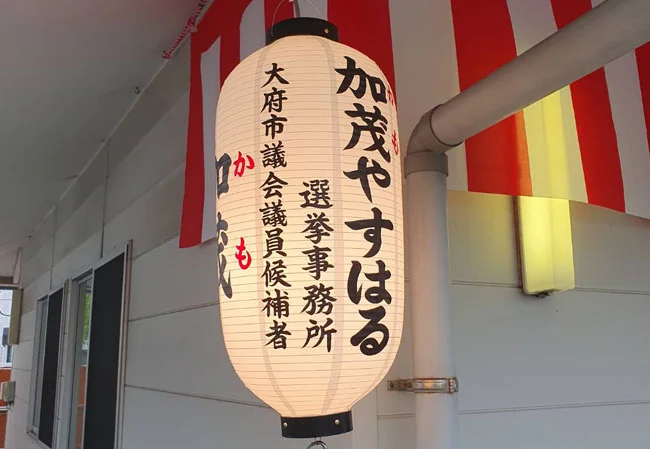 大府市議会議員候補者
選挙事務所
加茂やすはる
かも
加茂
かも